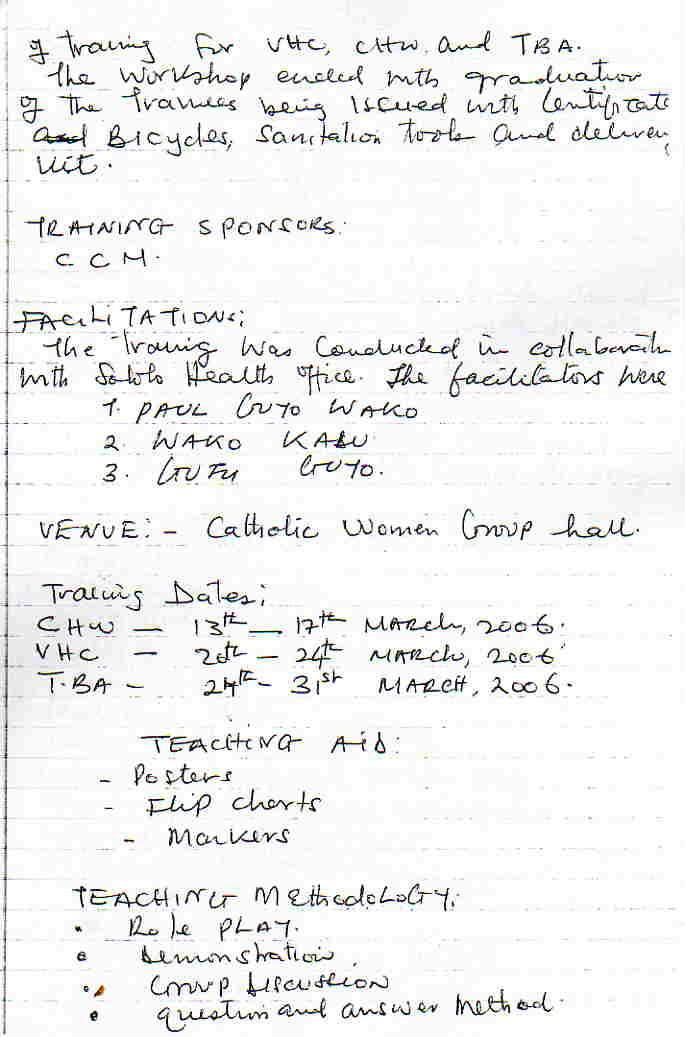 of Training for VHC, CHW, and TBA.
The Workshop ended with graduation
of the Trainees being issued with Certificate
and Bicycles, Sanitation tools and delivery
kit.
TRAINING SPONSORS:
C C M.
FACILITATIONS;
The Training was Conducted in collaboration
with Sololo Health office. The facilitators were
1. PAUL GUYO WAKO
2. WAKO KALU
3. GUFU GUYO.
VENUE:- Catholic Women Group hall.
Training Dates;
CHW — 13th — 17th MARCH, 2006.
VHC — 20th — 24th MARCH, 2006
T.BA — 27th - 31st MARCH, 2006.
TEACHING AID:
- Posters
- Flip charts
- Markers
TEACHING METHODOLOGY;
• Role PLAY.
• Demonstration.
• Group Discussion
• question and answer Method.